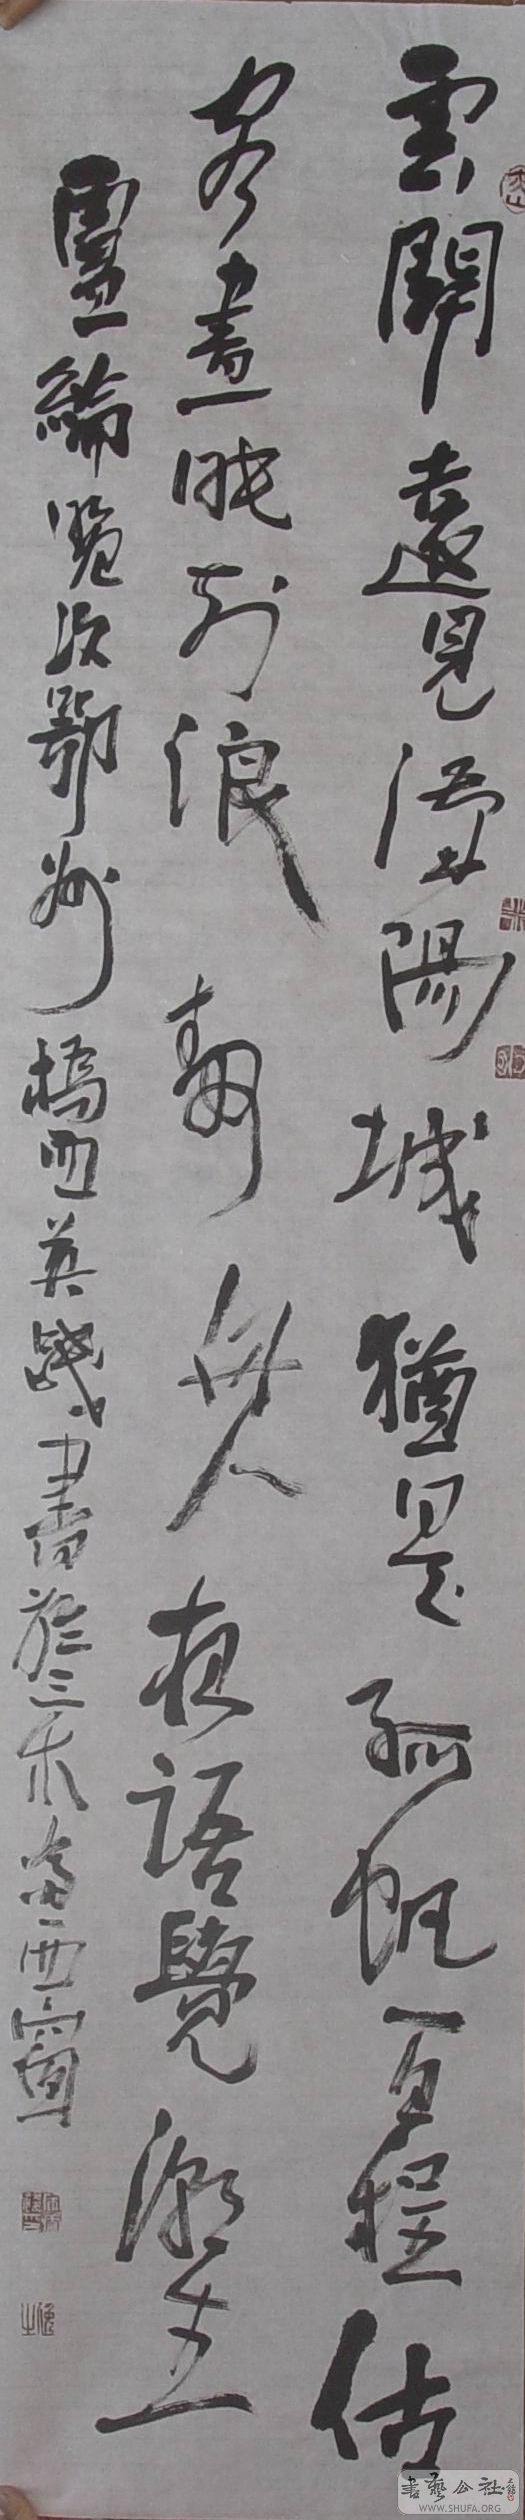 雲開遠見漢陽城猶是孤帆一日程估
客晝眠知浪靜舟人夜語覺潮生
盧綸晚次鄂州橋西英書於三木齋西窗
書藝公社
WWW.SHUFA.ORG